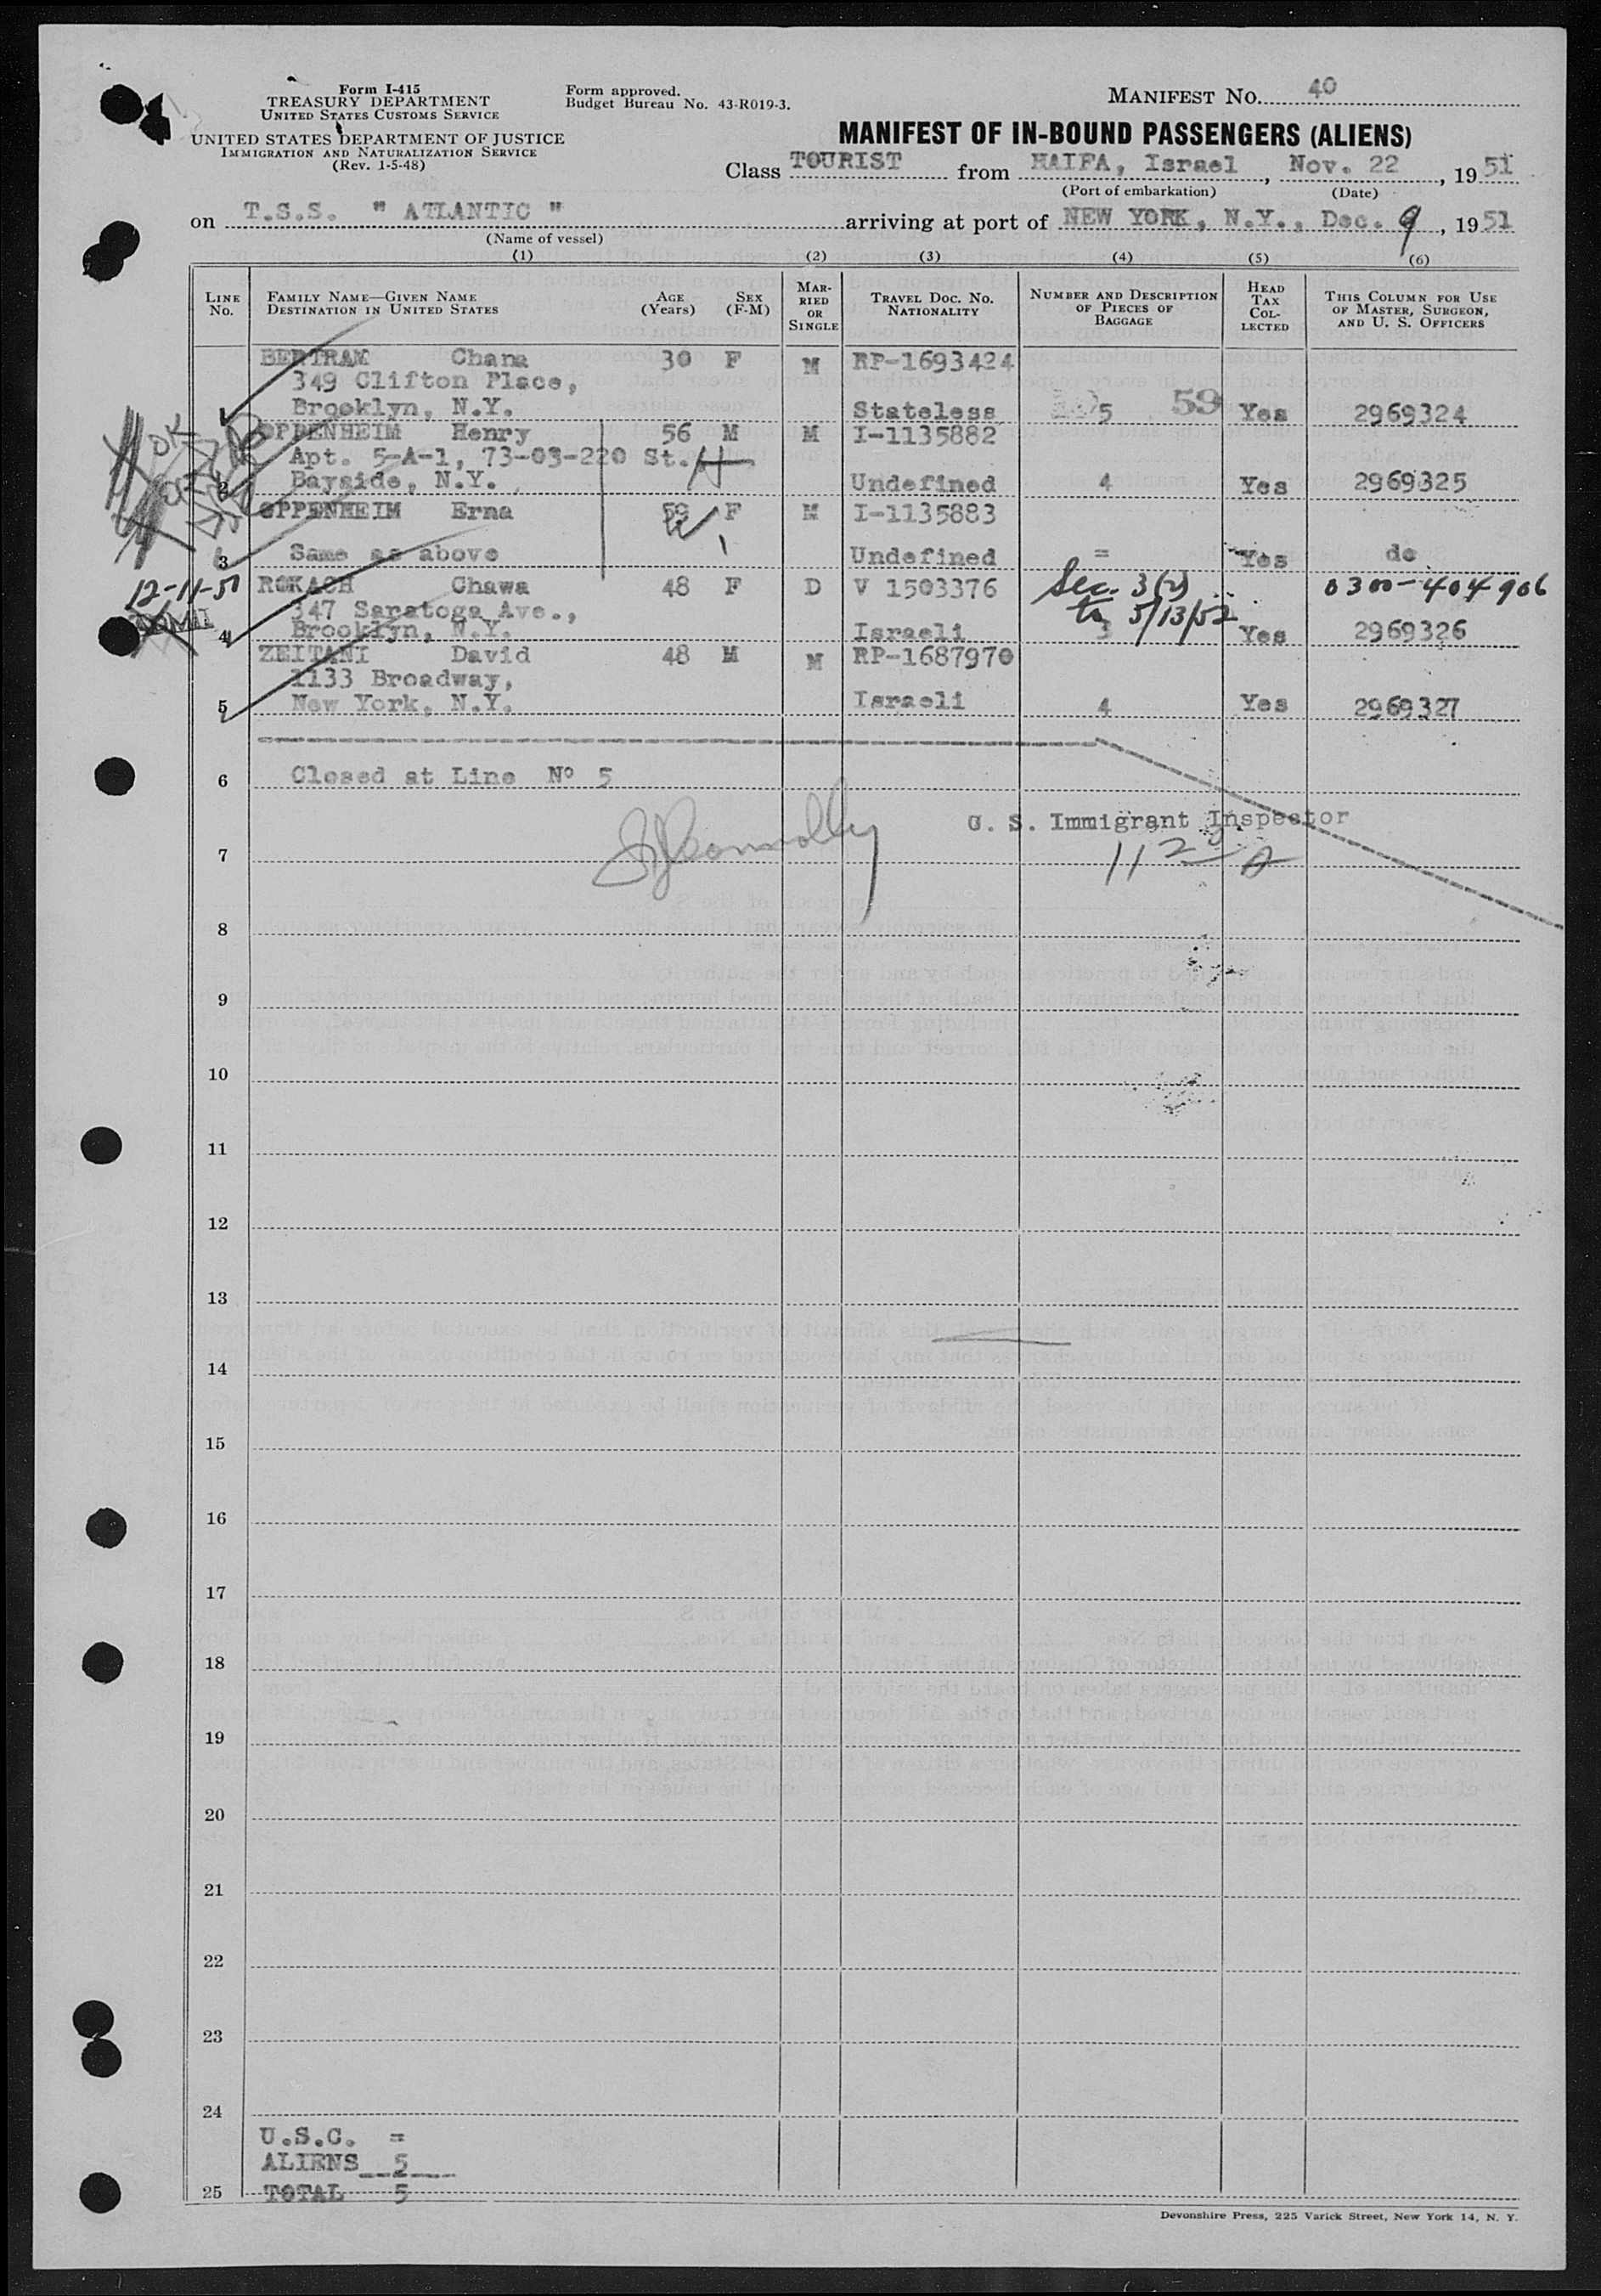 Form I-415
TREASURY DEPARTMENT
UNITED STATES CUSTOMS SERVICE
UNITED STATES DEPARTMENT OF JUSTICE
IMMIGRATION AND NATURALIZATION SERVICE
(Rev. 1-5-48)
Form approved.
Budget Bureau No. 43-R019-3.
MANIFEST NO. 40
MANIFEST OF IN-BOUND PASSENGERS (ALIENS)
Class TOURIST from HAIFA, Israel, Nov. 22, 1951
(Port of embarkation) (Date)
on T.S.S. " ATLANTIC " arriving at port of NEW YORK, N.Y., Dec. 9, 1951
(Name of vessel)
(1) (2) (3) (4) (5) (6)
LINE NO.
FAMILY NAME—GIVEN NAME
DESTINATION IN UNITED STATES
AGE (YEARS)
SEX (F-M)
MARRIED OR SINGLE
TRAVEL DOC. NO.
NATIONALITY
NUMBER AND DESCRIPTION OF PIECES OF BAGGAGE
HEAD TAX COLLECTED
THIS COLUMN FOR USE OF MASTER, SURGEON, AND U. S. OFFICERS
BERTRAM Chana 30 F M RP-1693424
349 Clifton Place,
Brooklyn, N.Y. Stateless 5 59 Yes 2969324
OK
OPPENHEIM Henry 56 M M I-1135882
Apt. 5-A-1, 73-03-220 St.
2 Bayside, N.Y. Undefined 4 Yes 2969325
OPPENHEIM Erna 59 F M I-1135883
3 Same as above Undefined = Yes do
12-11-51 ROKACH Chawa 48 F D V 1503376 Sec. 3(2) 0300-404906
347 Saratoga Ave., to 5/13/52
4 Brooklyn, N.Y. Israeli 3 Yes 2969326
ZEITANI David 48 M M RP-1687970
1133 Broadway,
5 New York, N.Y. Israeli 4 Yes 2969327
6 Closed at Line No 5
U. S. Immigrant Inspector
7
8
9
10
11
12
13
14
15
16
17
18
19
20
21
22
23
24
U.S.C. =
ALIENS 5
25 TOTAL 5
Devonshire Press, 225 Varick Street, New York 14, N. Y.